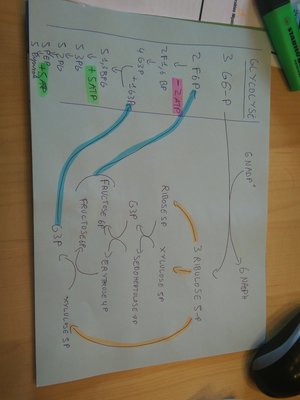 GLYCOLYSE
3 G6-P
2 F6P
- 2 ATP
2 F1,6 BP
4 G3P
+ 1 G3P
5 1,3BPG
+ 5 ATP
5 3PG
5 2PG
5 PEP
+ 5 ATP
5 Pyruvat
6 NADP⁺
6 NADPH
3 RIBULOSE 5-P
RIBOSE 5P
XYLULOSE 5P
G3P
SEDOHEPTULOSE 7P
FRUCTOSE 6P
ERYTHROSE 4P
FRUCTOSE 6P
G3P
XYLULOSE 5P